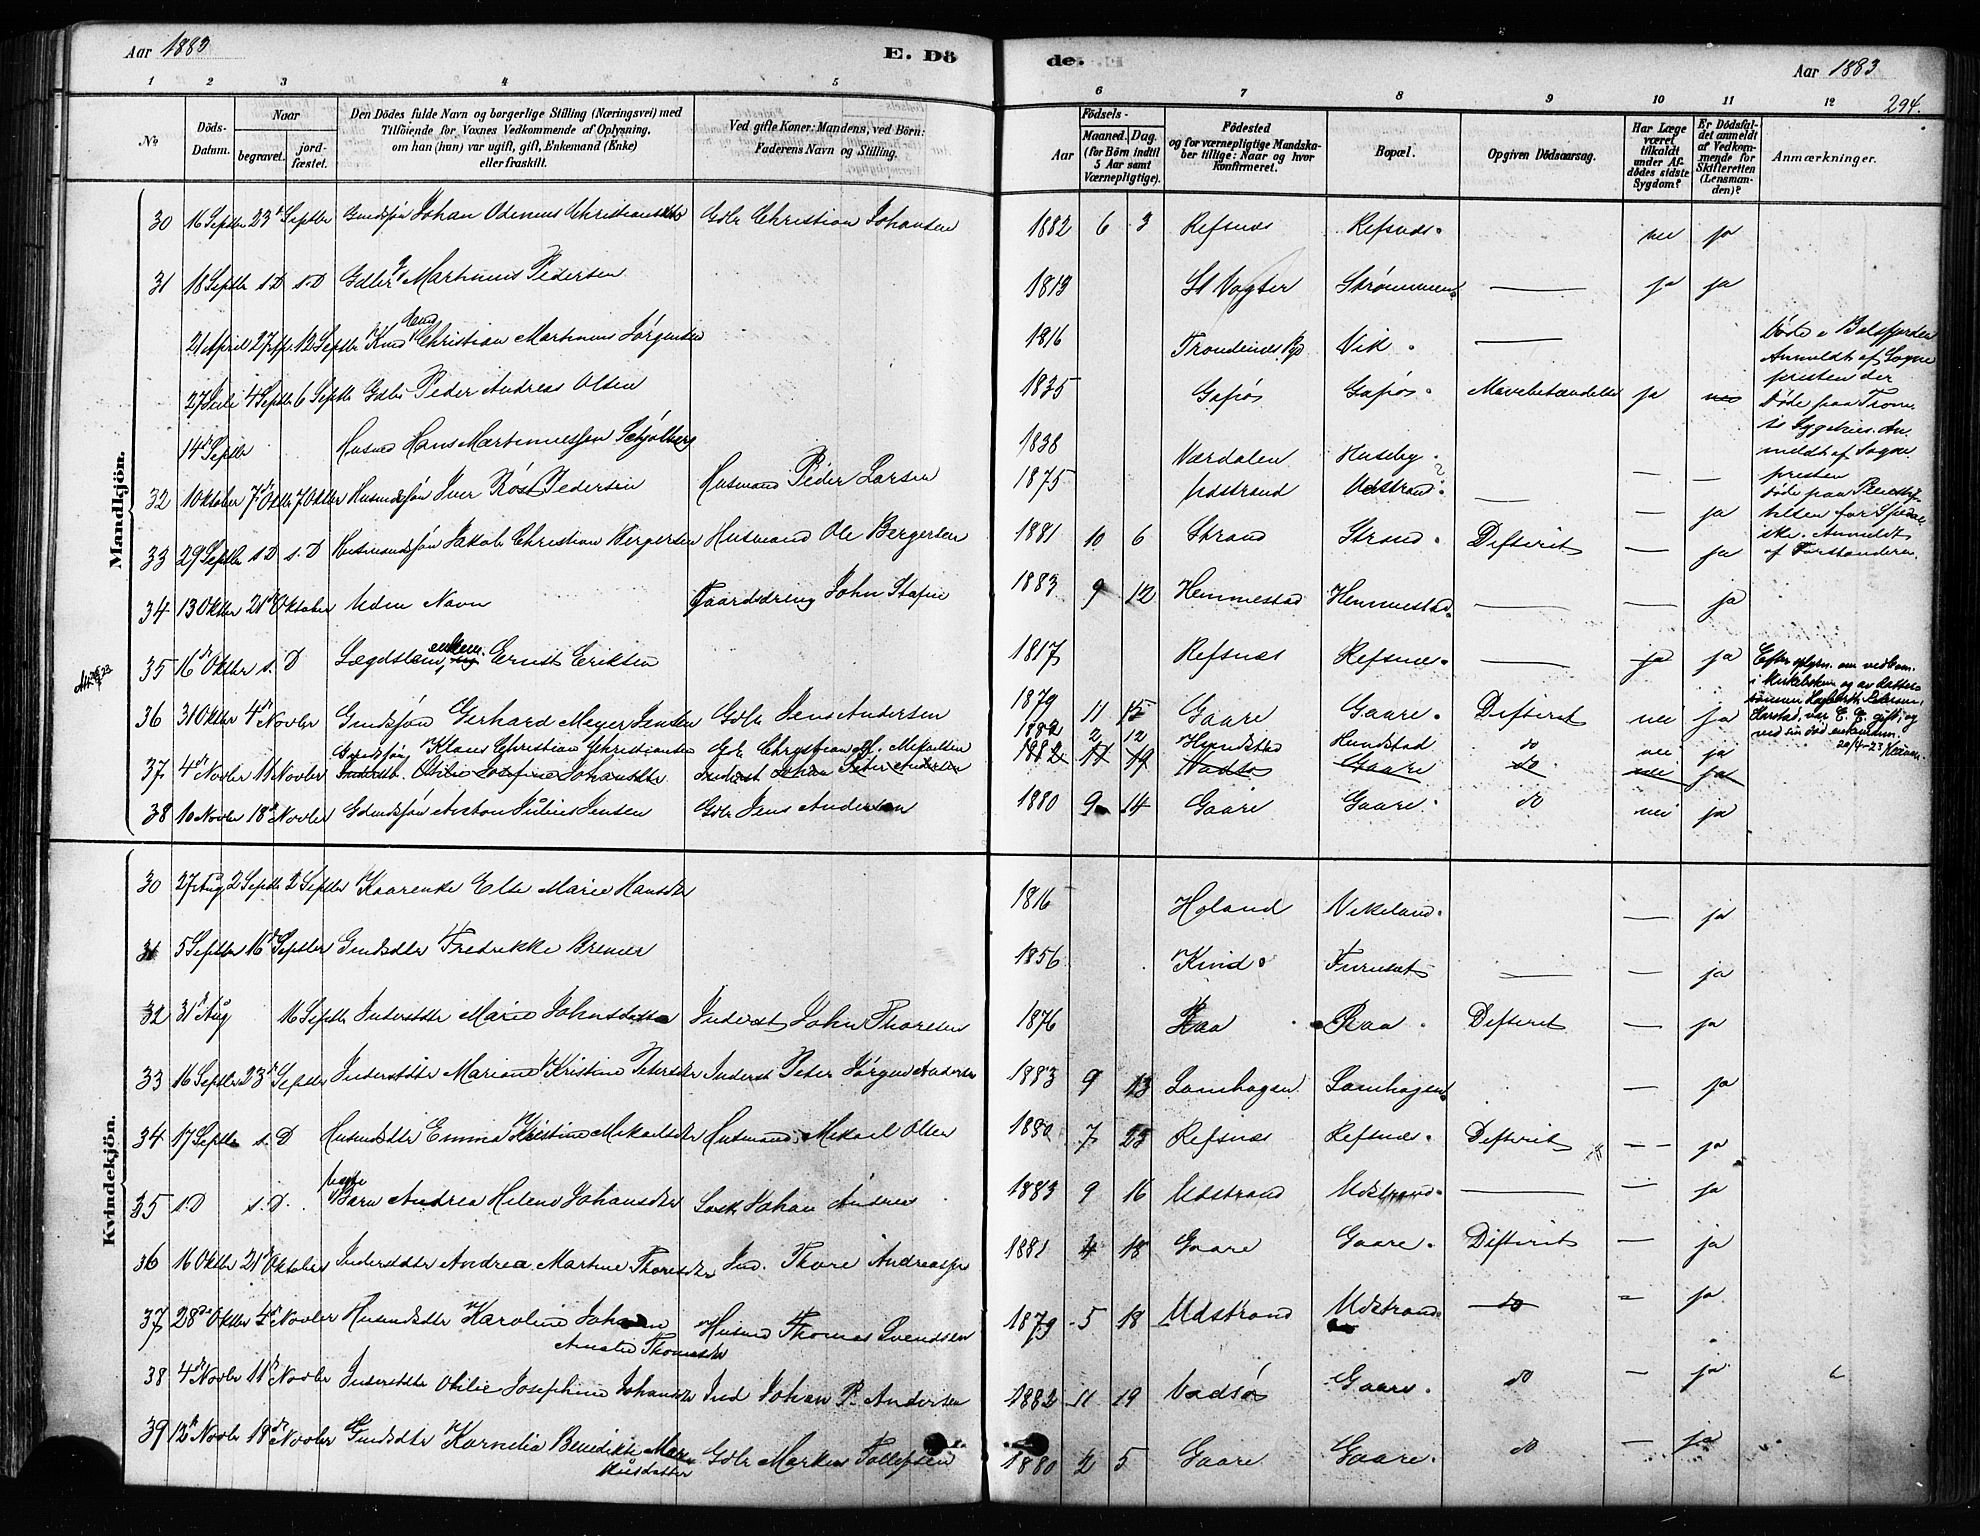 Aar 1883
E. Dö
de.
Aar 1883
294.
1 2 3 4 5 6 7 8 9 10 11 12
No
Döds-Datum.
Naar
begravet.
jord-fæstet.
Den Dödes fulde Navn og borgerlige Stilling (Næringsvei) med
Tilföiende for Voxnes Vedkommende af Oplysning.
om han (hun) var ugift, gift, Enkemand (Enke)
eller fraskilt.
Ved gifte Koner: Mandens, ved Börn:
Faderens Navn og Stilling.
Födsels-
Aar
Maaned. Dag.
(for Börn indtil
5 Aar samt
Værnepligtige).
Födested
og for værnepligtige Mandska-
ber tillige: Naar og hvor
Konfirmeret.
Bopæl.
Opgiven Dödsaarsag.
Har Læge
været
tilkaldt
under Af-
dödes sidste
Sygdom?
Er Dödsfal-
det anmeldt
af Vedkom-
mende for
Skifteretten
(Lensman-
den)?
Anmærkninger.
Mandkjön.
30 16 Septbr 23d Septbr Gmdssøn Johan Odenius Christiansen Gdbr Christian Johansen 1882 6 3 Refsnes Refsnes. nei ja
31 18 Septbr s.D s.D Gdbr Martinus Pedersen 1819 St Vogter Strømmen. ja ja
21 April 27 Ap. 12 Septbr Christian Martinus Jørgensen 1816 Trondenes Vik.
27 Juli 4 Septbr 6 Septbr Gdbr Peder Andreas Olsen 1835 Gapøs Gapøs. Mavebetændelse ja nei
14d Septbr Husmd Hans Martinussen 1838 Værdalen Huseby.
32 1 Oktober 7d Oktbr 7 Oktbr Husmdssøn Iver Pedersen Husmand Peder Larsen 1875 Udstrand Udstrand. ja
33 29 Septbr s.D s.D Husmandssøn Jakob Christian Bergersen Husmand Ole Bergersen 1881 10 6 Strand Strand. Difterit ja
34 13 Oktbr 21d Oktober Uden Navn Gaardsdreng John 1883 9 12 Hemmestad Hemmestad. ja
35 16de Oktbr s. D Lægdslem, enkem. Ernst Eriksen 1817 Refsnes Refsnes. ja ja
36 31 Oktbr 4d Novbr Gmdssøn Gerhard Meyer Jensen Gdbr Jens Andersen 1879 11 15 Gaare Gaare. Difterit nei ja
Gmdssøn Klaus Christian Christiansen Gb. Christian Mikalsen 1882 2 12 Hundstad Hundstad do nei ja
37 4d Novbr 11 Novbr Inderst. Otilie Josefine Johansdtr Inderst Johan Peter Andersen 1882 11 19 Vadsø Gaare do nei ja
38 10 Novbr 18d Novbr Gdmdssøn Anton Julius Jensen Gdbr Jens Andersen 1880 9 14 Gaare Gaare. do nei ja
Døde i Balsfjorden
Anmeldt af Sogne
presten der
Døde paa Trom-
sø Sygehus. An-
meldt af Sogne
presten
døde paa Pleiestif-
telsen for Spedal
ske. Anmeldt
af Forstanderen.
Kvindekjön.
30 27 Aug 2 Septbr 2 Septbr Kaarenke Else Marie Hansdtr 1816 Holand Vikeland. ja
31 5 Septbr 16d Septbr Gmdsdtr Fredrikke Bremer 1856 Kind. Furuset ja
32 31 Aug 16 Septbr Inderstdtr Marie Johnsdatter Inderst John Thoresen 1876 Raa Raa. Difterit ja
33 16 Septbr 23d Septbr Inderstdtr Mariane Kristine Petersdtr Inderst Peter Jørgen Andersen 1883 9 13 Lamhagen Lamhagen. ja
34 17 Septbr s. D Husmdsdtr Emma Kristine Mikaelsdtr Husmand Mikael Olsen 1880 7 23 Refsnes Refsnes. Difterit ja
35 s.D s.D. uægte Barn Andrea Helene Johansdtr Johan Andrea 1883 9 16 Udstrand Udstrand. ja
36 16 Oktbr 21d Oktober Inderstdtr Andrea Martine Thoresdtr Ind. Thore Andreassen 1881 4 18 Gaare Gaare. Difterit ja
37 28de Oktbr 4d Novbr Husmdsdtr Karoline Johan Husmd Thomas Svendsen 1879 5 18 Udstrand Udstrand. do ja
Amalie Thomasdtr
38 4d Novbr 11d Novbr Inderstdtr Otilie Josephine Johansdtr Ind Johan P. Andersen 1882 11 19 Vadsø Gaare. do ja
39 12te Novbr 18d Novbr Gmdsdtr Kornelia Benedikte Mar- Gdbr Markus Tollefsen 1880 2 5 Gaare Gaare. do ja
kusdatter